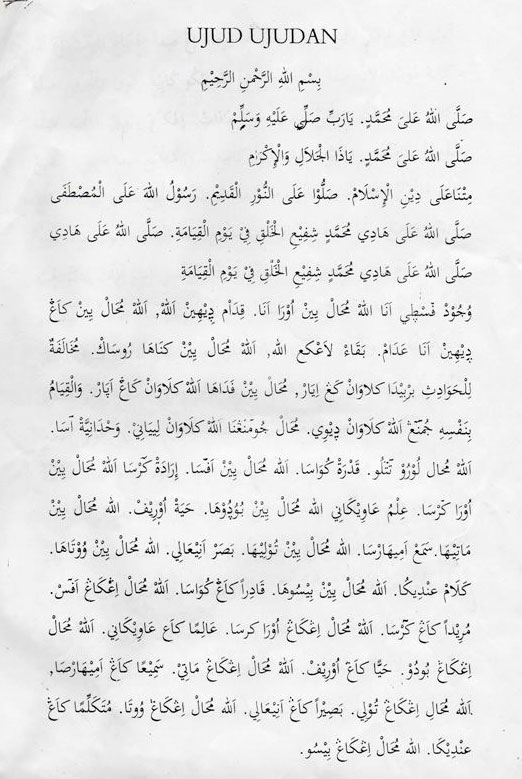 UJUD UJUDAN
بِسْمِ اللهِ الرَّحْمنِ الرَّحِيْمِ
صَلَّى اللهُ عَلىَ مُحَمَّدٍ. يَارَبِّ صَلِّي عَلَيْهِ وَسَلِّمْ
صَلَّى اللهُ عَلىَ مُحَمَّدٍ. يَاذَا الْجَلاَلِ وَالْإِكْرَامِ
مِتْنَاعَلَى دِيْنِ الْإِسْلاَمْ. صَلُّوْا عَلَى النُّوْرِ الْقَدِيْمِ. رَسُوْلُ اللهَ عَلَى الْمُصْطَفَى
صَلَّى اللهُ عَلَى هَادِي مُحَمَّدٍ شَفِيْعِ الْخَلْقِ فِيْ يَوْمِ الْقِيَامَةِ. صَلَّى اللهُ عَلَى هَادِي
صَلَّى اللهُ عَلَى هَادِيْ مُحَمَّدٍ شَفِيْعِ الْخَلْقِ فِيْ يَوْمِ الْقِيَامَةِ
وُجُوْدْ فَسْطِي اَنَا اللهُ مُحَالْ يِيْنْ اُوْرَا اَنَا. قِدَامْ دِيْهِيْنْ اَللهْ, اَللهُ مُحَالْ يِيْنْ كاَڠْ
دِيْهِيْنْ اَنَا عَدَامْ. بَقَاءْ لاَعْكع الله, اَللهُ مُحَالْ يِيْنْ كنَاهَا رُوسَاكْ. مُخَالَفَةٌ
لِلْحَوَادِثِ بَرْبَيْدَا كلاوَانْ كَڠْ اِيَارْ, مُحَالْ يِيْنْ فَدَاهَا اَللهُ كلاَوَانْ كَاڠْ اَپَارْ. وَالْقِيَامُ
بِنَفْسِهِ جُمْنَعْ اَللهُ كلاَوَانْ دِيْوِي. مُحَالْ جُومْنعْنَا اَللهُ كلاَوَانْ لِييَانَيْ. وَحْدَانِيَّةْ اَسَا.
اَللهُ مُحال لُوْرُوْ تتلُو. قُدْرَةْ كُوَاسَا. اَلله مُحَالْ يِيْنْ اَفَسَا. إِرَادَةْ كَرْسَا اَللهُ مُحَالْ يِيْنْ
اُوْرَا كَرْسَا. عِلْمُ عَاوِيْكَانِي الله مُحَالْ يِيْنْ بُوْدُوْهَا. حَيَةْ اُوْرِيْفْ. الله مُحَالْ يِيْنْ
مَاتِيْهَا. سَمَعْ اَمِيهَارْسَا. الله مُحَالْ يِيْنْ تُوْلِيْهَا. بَصَرْ اَنِيْعَالِي. الله مُحَالْ يِيْنْ وُوْتَاهَا.
كَلاَمْ عنْدِيكُا. الله مُحَالْ يِيْنْ بِيْسُوهَا. قَادِراً كَاڠْ كُوَاسَا. اَللهُ مُحَالْ اِڠْكَاڠْ اَفَسْ.
مُرِيْداً كاَڠْ كَرْسَا. اَللهُ مُحَالْ اِڠْكَاڠْ اُوْرَا كرسَا. عَالِمًا كاَع عَاوِيْكَانِي. اَللهُ مُحَالْ
اِڠْكَاڠْ بُودُوْ. حَيًّا كَاڠْ اُوْرِيْفْ. اَللهُ مُحَالْ اِڠْكَاڠْ مَاتِيْ. سَمِيْعًا كَاڠْ اَمِيْهَارْصَا,
اَلله مُحَالِ اِڠْكَاڠْ تُوْلِي. بَصِيْراً كاَڠْ اَنِيْعَالِي. اَلله مُحَالْ اِڠْكَاڠْ وُوتَا. مُتَكَلِّمًا كاَڠْ
عنْدِيْكَا. الله مُحَالْ اِڠْكَاڠْ بِيْسُو.